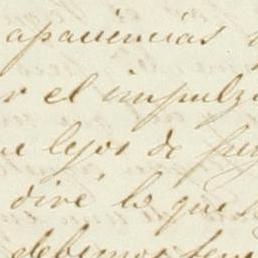 apariencias
el impulso
lejos de
diré lo que
debemos